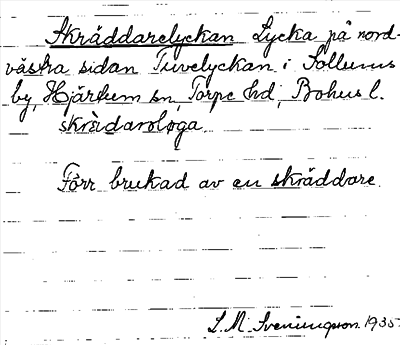 Skräddarelyckan Lycka på nord-
västra sidan Tuvelyckan i Sollums
by, Hjärtum sn, Torpe hd, Bohus l.
skrädarøløga.
Förr brukad av en skräddare.
L. M. Svenungsson 1935